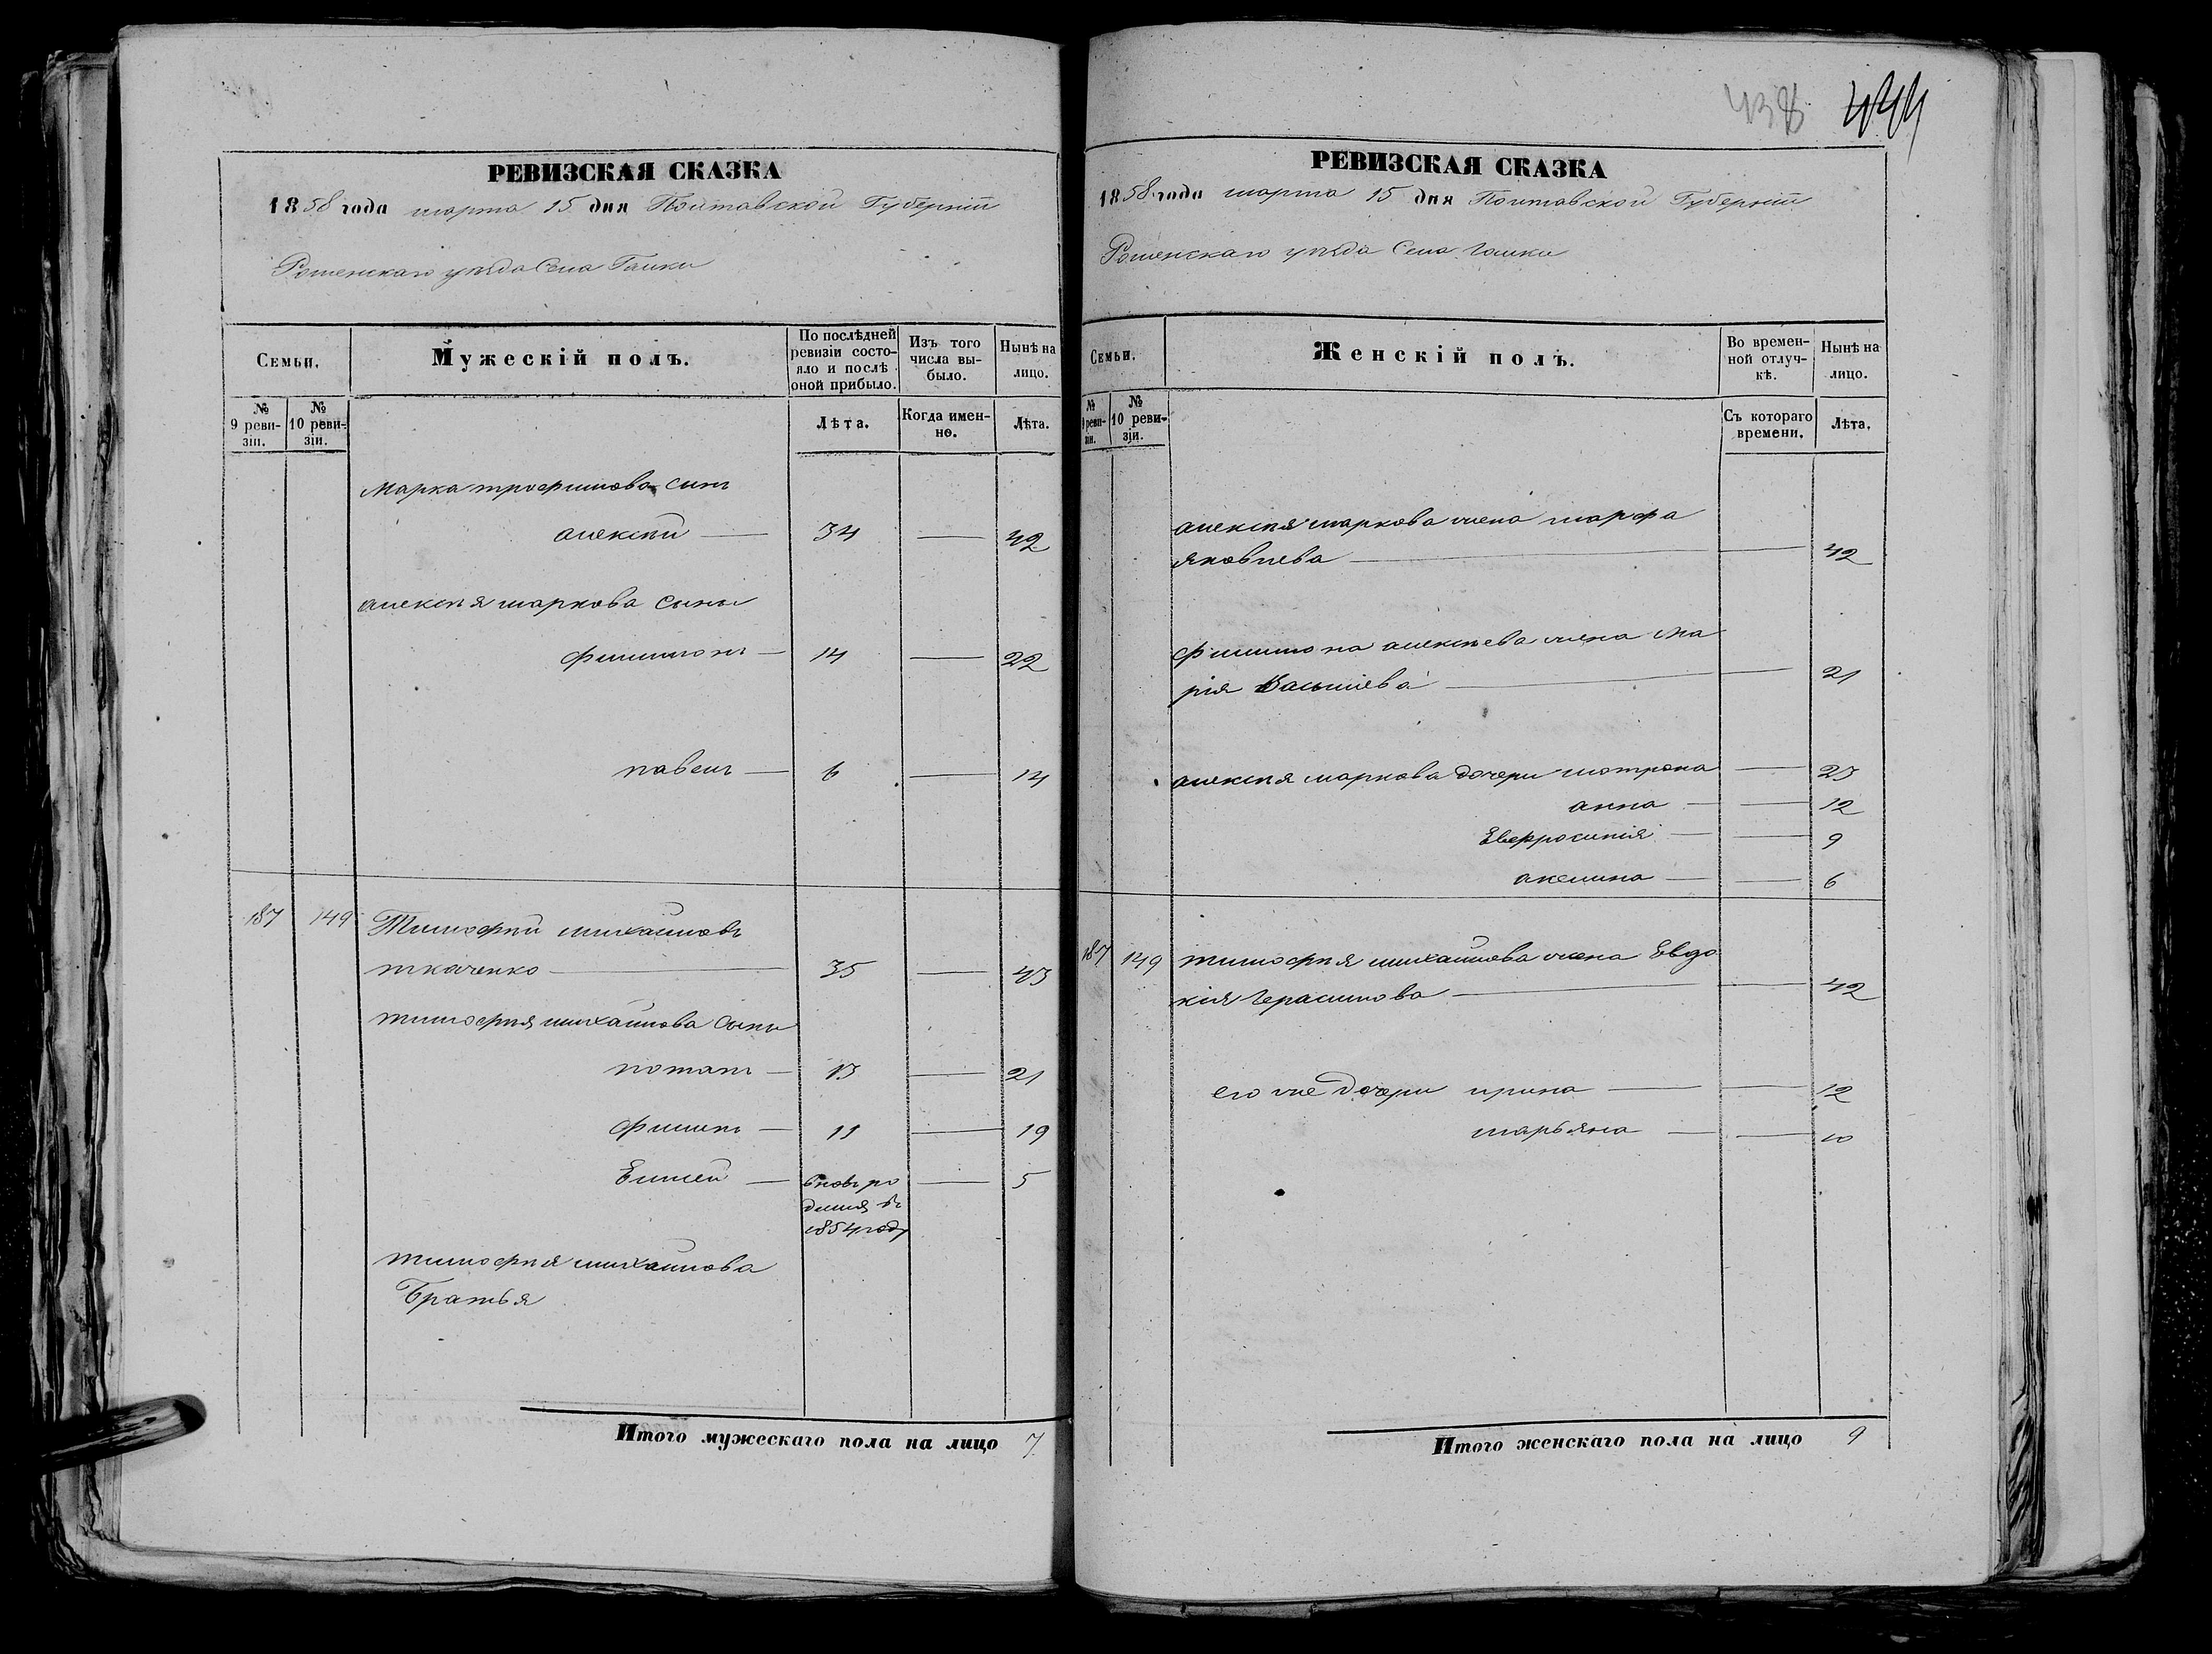 РЕВИЗСКАЯ СКАЗКА
1858 года марта 15 дня Полтавской Губерніи
Роменскаго уѣзда Села Галки
Семьи.
Мужескій полъ.
По послѣдней ревизіи состояло и послѣ оной прибыло.
Изъ того числа выбыло.
Нынѣ на лицо.
№ 9 ревизіи.
№ 10 ревизіи.
Лѣта.
Когда именно.
Лѣта.
Марка трофимова сынъ
алексѣй — 34 — 42
алексѣя маркова сыны
филимонъ — 14 — 22
павелъ — 6 — 14
187 149 Тимофѣй михайловъ
ткаченко — 35 — 43
тимофѣя михайлова сыны
потапъ — 13 — 21
филипъ — 11 — 19
Елисей — вновь ро — 5
дился въ
1854 году
тимофѣя михайлова
Братья
Итого мужескаго пола на лицо 7
438 444
РЕВИЗСКАЯ СКАЗКА
1858 года марта 15 дня Полтавской Губерніи
Роменскаго уѣзда Села Галки
Семьи.
Женскій полъ.
Во временной отлучкѣ.
Нынѣ на лицо.
№ 9 ревизіи.
№ 10 ревизіи.
Съ котораго времени.
Лѣта.
алексѣя маркова жена марфа
яковлева — — 42
филимона алексѣева жена ма
рія Васильева — — 21
алексѣя маркова дочери мотрона — 23
анна — — 12
Евфросинія — — 9
акелина — — 6
187 149 тимофѣя михайлова жена Евдо
кія Герасимова — — 42
его же дочери ирина — — 12
марьяна — — 10
Итого женскаго пола на лицо 9